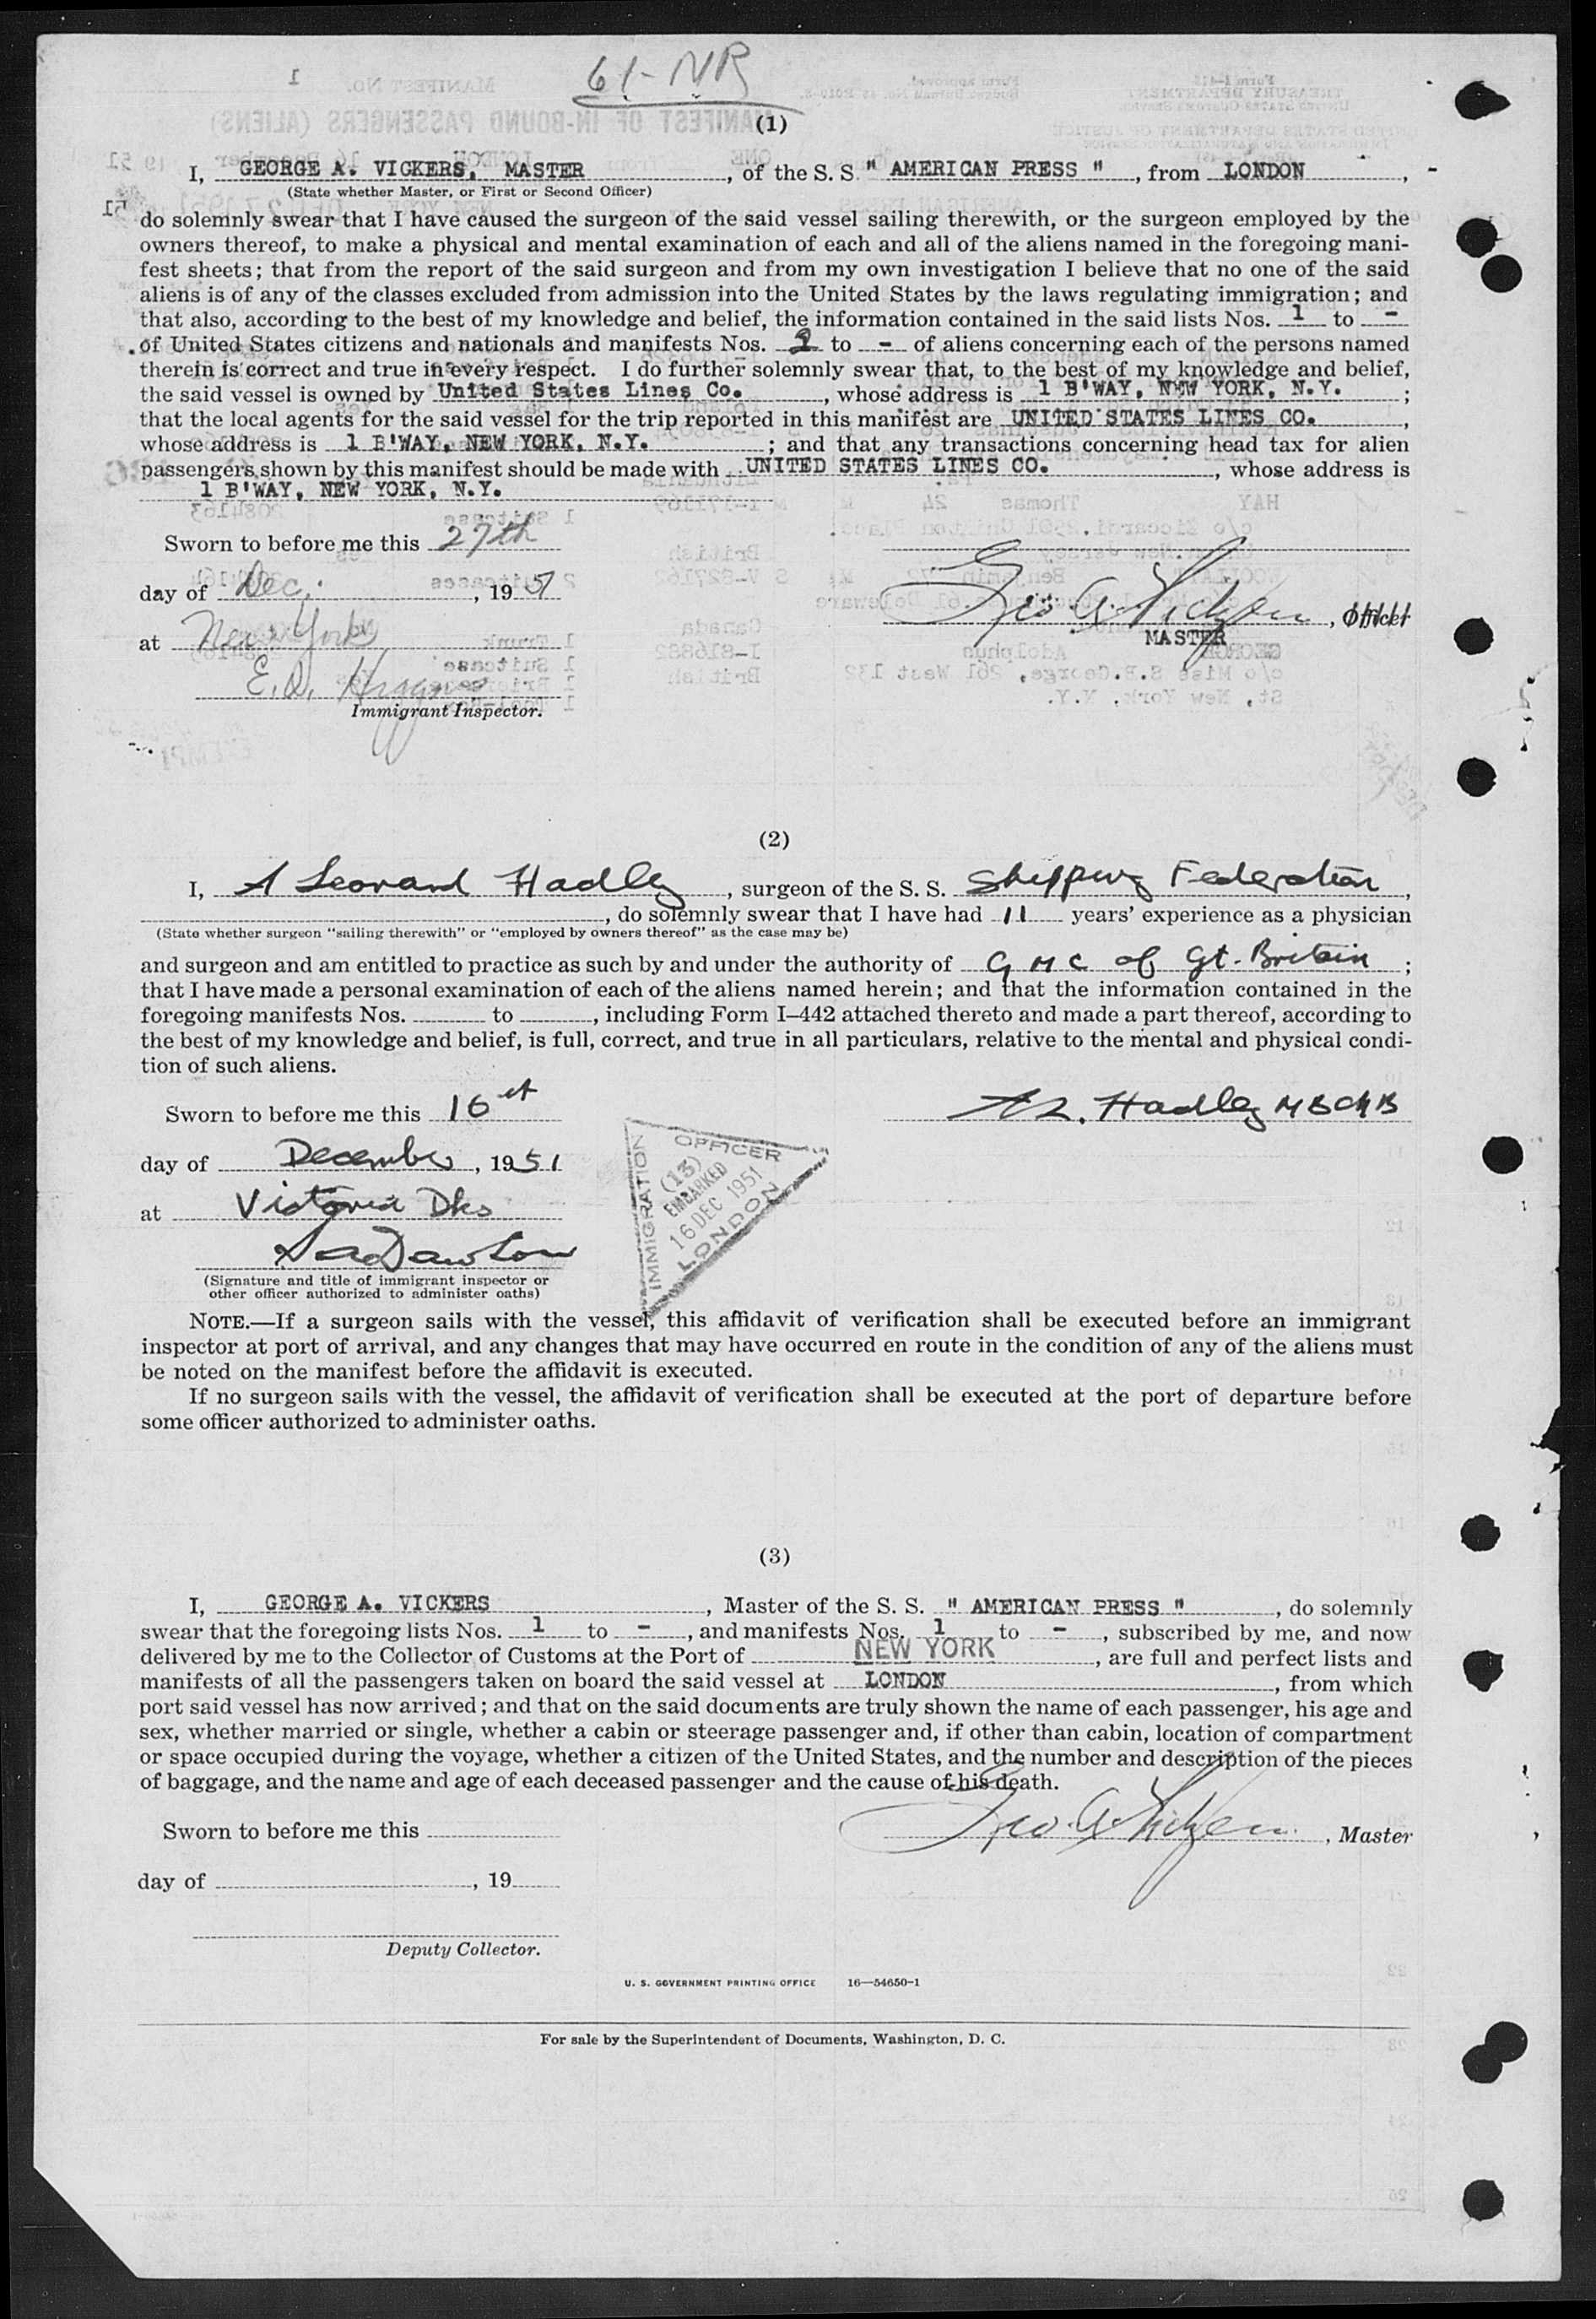 61-NR
(1)
I, GEORGE A. VICKERS, MASTER, of the S. S. " AMERICAN PRESS ", from LONDON, -
(State whether Master, or First or Second Officer)
do solemnly swear that I have caused the surgeon of the said vessel sailing therewith, or the surgeon employed by the
owners thereof, to make a physical and mental examination of each and all of the aliens named in the foregoing mani-
fest sheets; that from the report of the said surgeon and from my own investigation I believe that no one of the said
aliens is of any of the classes excluded from admission into the United States by the laws regulating immigration; and
that also, according to the best of my knowledge and belief, the information contained in the said lists Nos. 1 to -
of United States citizens and nationals and manifests Nos. to - of aliens concerning each of the persons named
therein is correct and true in every respect. I do further solemnly swear that, to the best of my knowledge and belief,
the said vessel is owned by United States Lines Co., whose address is 1 B'WAY, NEW YORK, N.Y. ;
that the local agents for the said vessel for the trip reported in this manifest are UNITED STATES LINES CO.,
whose address is 1 B'WAY, NEW YORK, N.Y. ; and that any transactions concerning head tax for alien
passengers shown by this manifest should be made with UNITED STATES LINES CO., whose address is
1 B'WAY, NEW YORK, N.Y.
Sworn to before me this 27th
day of Dec., 1951
Geo. A. Vickers, Officer
MASTER
at New York
E.
Immigrant Inspector.
(2)
I, A Leonard Hadley, surgeon of the S. S. Shipping Federation,
, do solemnly swear that I have had 11 years' experience as a physician
(State whether surgeon "sailing therewith" or "employed by owners thereof" as the case may be)
and surgeon and am entitled to practice as such by and under the authority of G M C of Gt. Britain ;
that I have made a personal examination of each of the aliens named herein; and that the information contained in the
foregoing manifests Nos. to , including Form I–442 attached thereto and made a part thereof, according to
the best of my knowledge and belief, is full, correct, and true in all particulars, relative to the mental and physical condi-
tion of such aliens.
Sworn to before me this 16
A L. Hadley M B Ch B
day of December, 1951
at Victoria Dks
IMMIGRATION OFFICER
(13)
EMBARKED
16 DEC 1951
LONDON
(Signature and title of immigrant inspector or
other officer authorized to administer oaths)
NOTE.—If a surgeon sails with the vessel, this affidavit of verification shall be executed before an immigrant
inspector at port of arrival, and any changes that may have occurred en route in the condition of any of the aliens must
be noted on the manifest before the affidavit is executed.
If no surgeon sails with the vessel, the affidavit of verification shall be executed at the port of departure before
some officer authorized to administer oaths.
(3)
I, GEORGE A. VICKERS, Master of the S. S. " AMERICAN PRESS ", do solemnly
swear that the foregoing lists Nos. 1 to -, and manifests Nos. 1 to -, subscribed by me, and now
delivered by me to the Collector of Customs at the Port of NEW YORK, are full and perfect lists and
manifests of all the passengers taken on board the said vessel at LONDON, from which
port said vessel has now arrived; and that on the said documents are truly shown the name of each passenger, his age and
sex, whether married or single, whether a cabin or steerage passenger and, if other than cabin, location of compartment
or space occupied during the voyage, whether a citizen of the United States, and the number and description of the pieces
of baggage, and the name and age of each deceased passenger and the cause of his death.
Sworn to before me this
Geo. A. Vickers, Master
day of , 19
Deputy Collector.
U. S. GOVERNMENT PRINTING OFFICE 16—54650-1
For sale by the Superintendent of Documents, Washington, D. C.